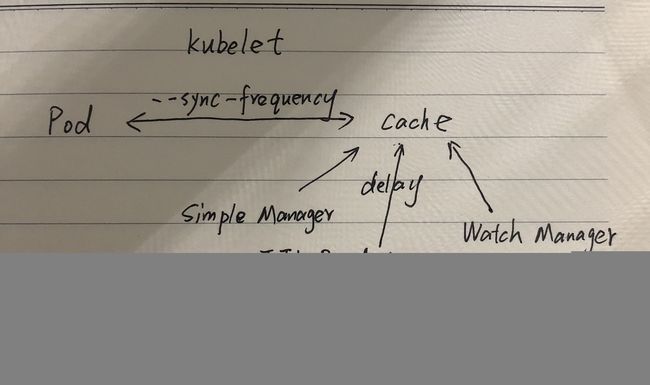 kubelet
--sync-frequency
Pod
cache
delay
Simple Manager
Watch Manager